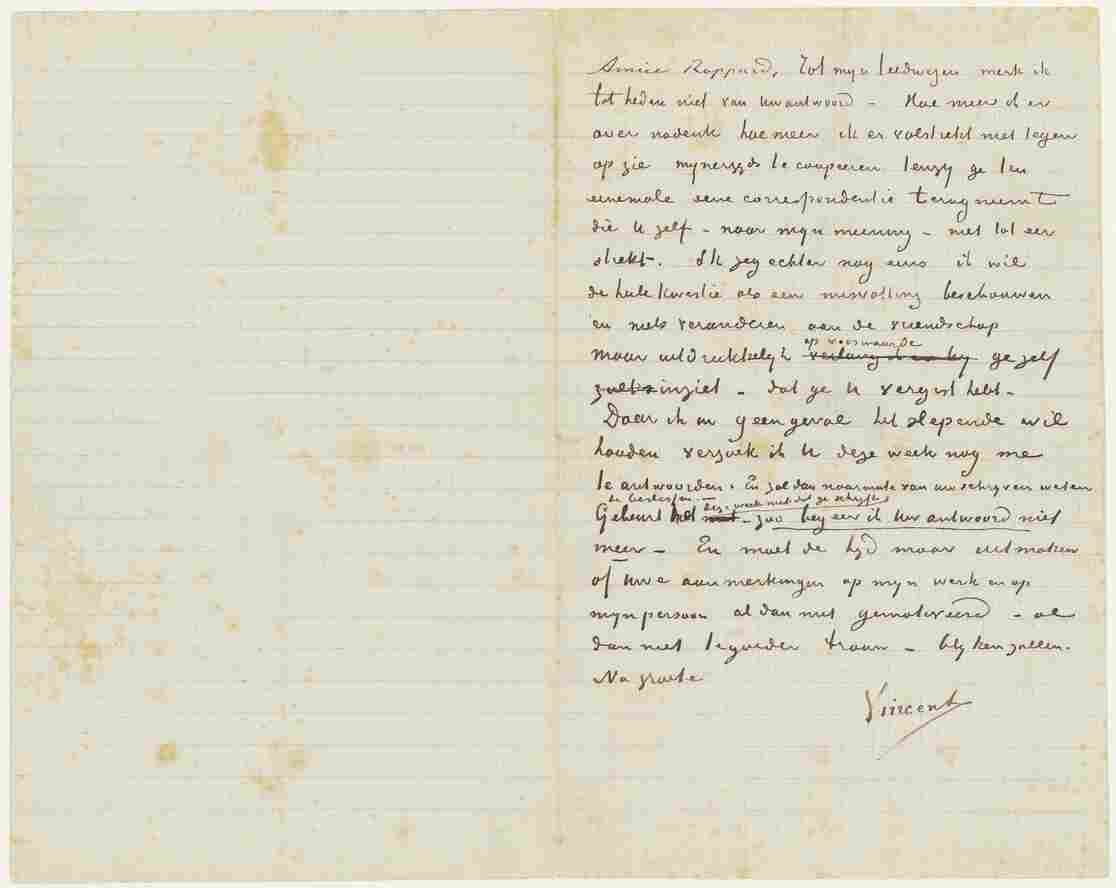 Amice Rappard, Tot mijn leedwezen merk ik
tot heden niet van Uw antwoord – Hoe meer ik er
over nadenk hoe meer ik er volstrekt niet tegen
op zie mijnerzijds te coupeeren tenzij ge ten
eenemale eene correspondentie terugneemt
die U zelf – naar mijn meening – niet tot eer
strekt. Ik zeg echter nog eens ik wil
de heele kwestie als een misvatting beschouwen
en niets veranderen aan de vriendschap
op voorwaarde
maar uitdrukkelijk verlang ik ge zelf
zult inziet – dat ge U vergist hebt –
Daar ik in geen geval het slepende wil
houden verzoek ik U deze week nog me
te antwoorden. En zal dan naarmate van uw schrijven weten
te beslissen. – deze week niet dat ge schrijft
Gebeurt het niet – zoo begeer ik Uw antwoord niet
meer – En moet de tijd maar uitmaken
of Uwe aanmerkingen op mijn werk en op
mijn persoon al dan niet gemotiveerd – al
dan niet te goeder trouw – blijken zullen.
Na groete
Vincent